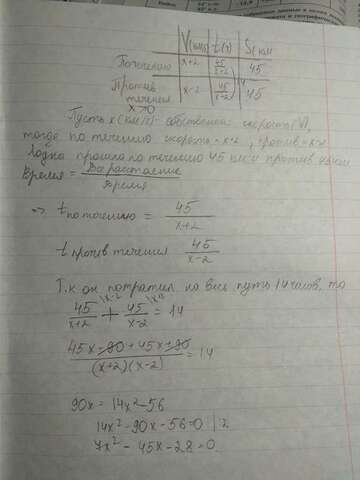 V(км/ч) t(ч) S(км
По течению x+2 45/x+2 45
Против течения x-2 45/x-2 45
x>0
Пусть x(км/ч)- собственная скорость
тогда по течению скорость = x+2, против = x-2
Лодка прошла по течению 45 км и против 45км
Время = Расстояние/время
=> t по течению = 45/x+2
t против течения 45/x-2
Т.к он потратил на весь путь 14 часов, то
45/x+2 + 45/x-2 = 14
45x-90+45x+90/(x+2)(x-2) = 14
90x = 14x²-56
14x²-90x-56=0 |:2
7x²-45x-28=0